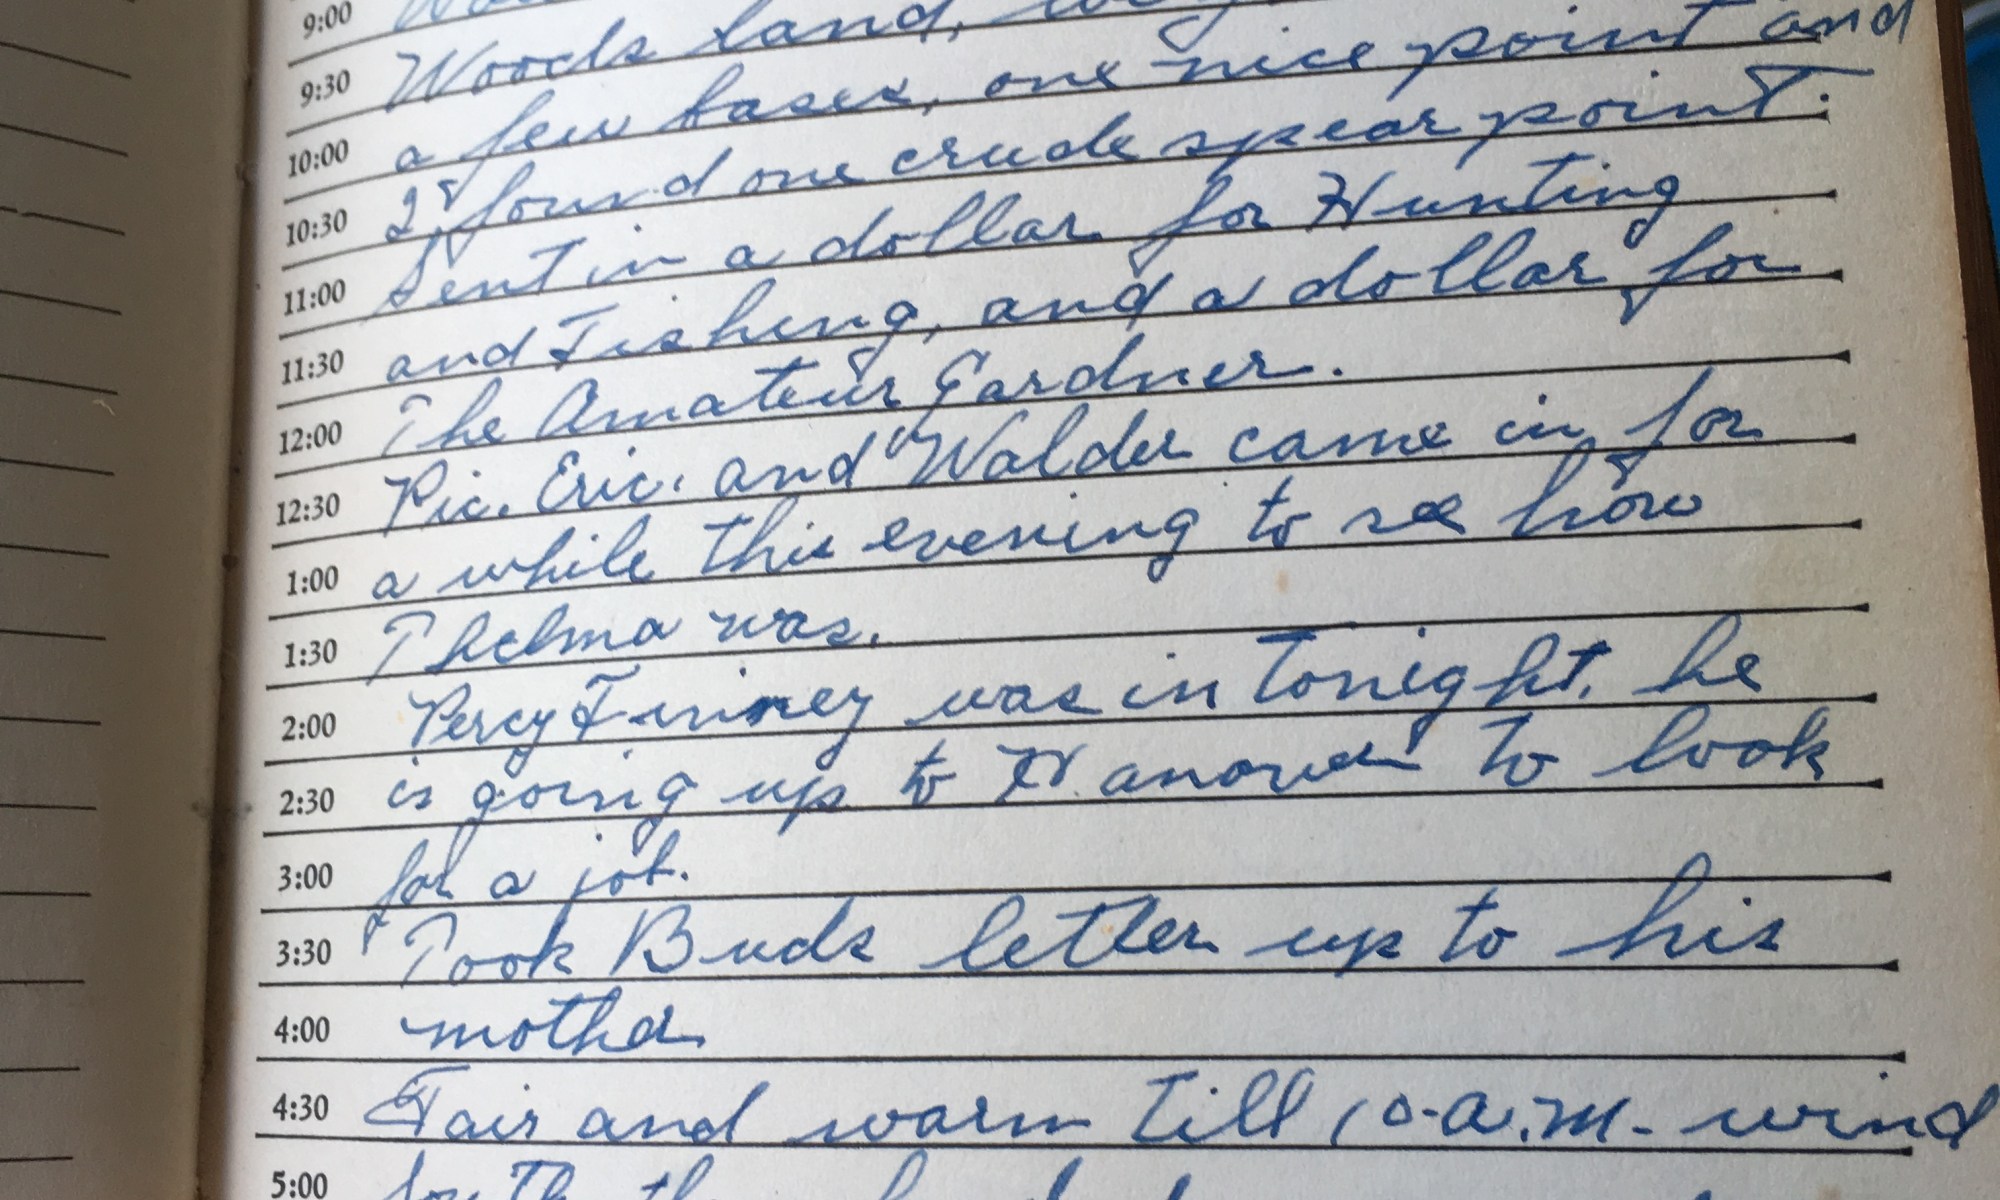 9:00
9:30 Woods land,
10:00 a few bases, one nice point and
10:30 I found one crude spear point.
11:00 Sent in a dollar for Hunting
11:30 and Fishing, and a dollar for
12:00 The Amateur Gardner.
12:30 Pic. Eric. and Walder came in for
1:00 a while this evening to see how
1:30 Thelma was.
2:00 Percy Finney was in Tonight. he
2:30 is going up to Hanover to look
3:00 for a job.
3:30 Took Buds letter up to his
4:00 mother
4:30 Fair and warm Till 10-a.m. wind
5:00